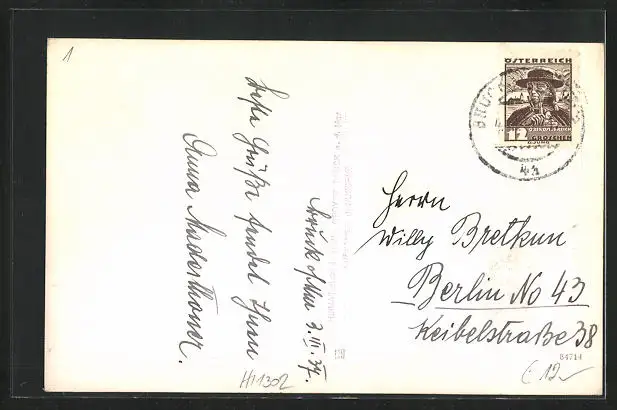 1
Beste Grüße sendet Ihnen
Anna
Bruck a/Mur 3.III.37.
ÖSTERREICH
12
GROSCHEN
BRUCK
Herrn
Willy Bretkun
Berlin No 43
Keibelstraße 38
84714
H11302
€12